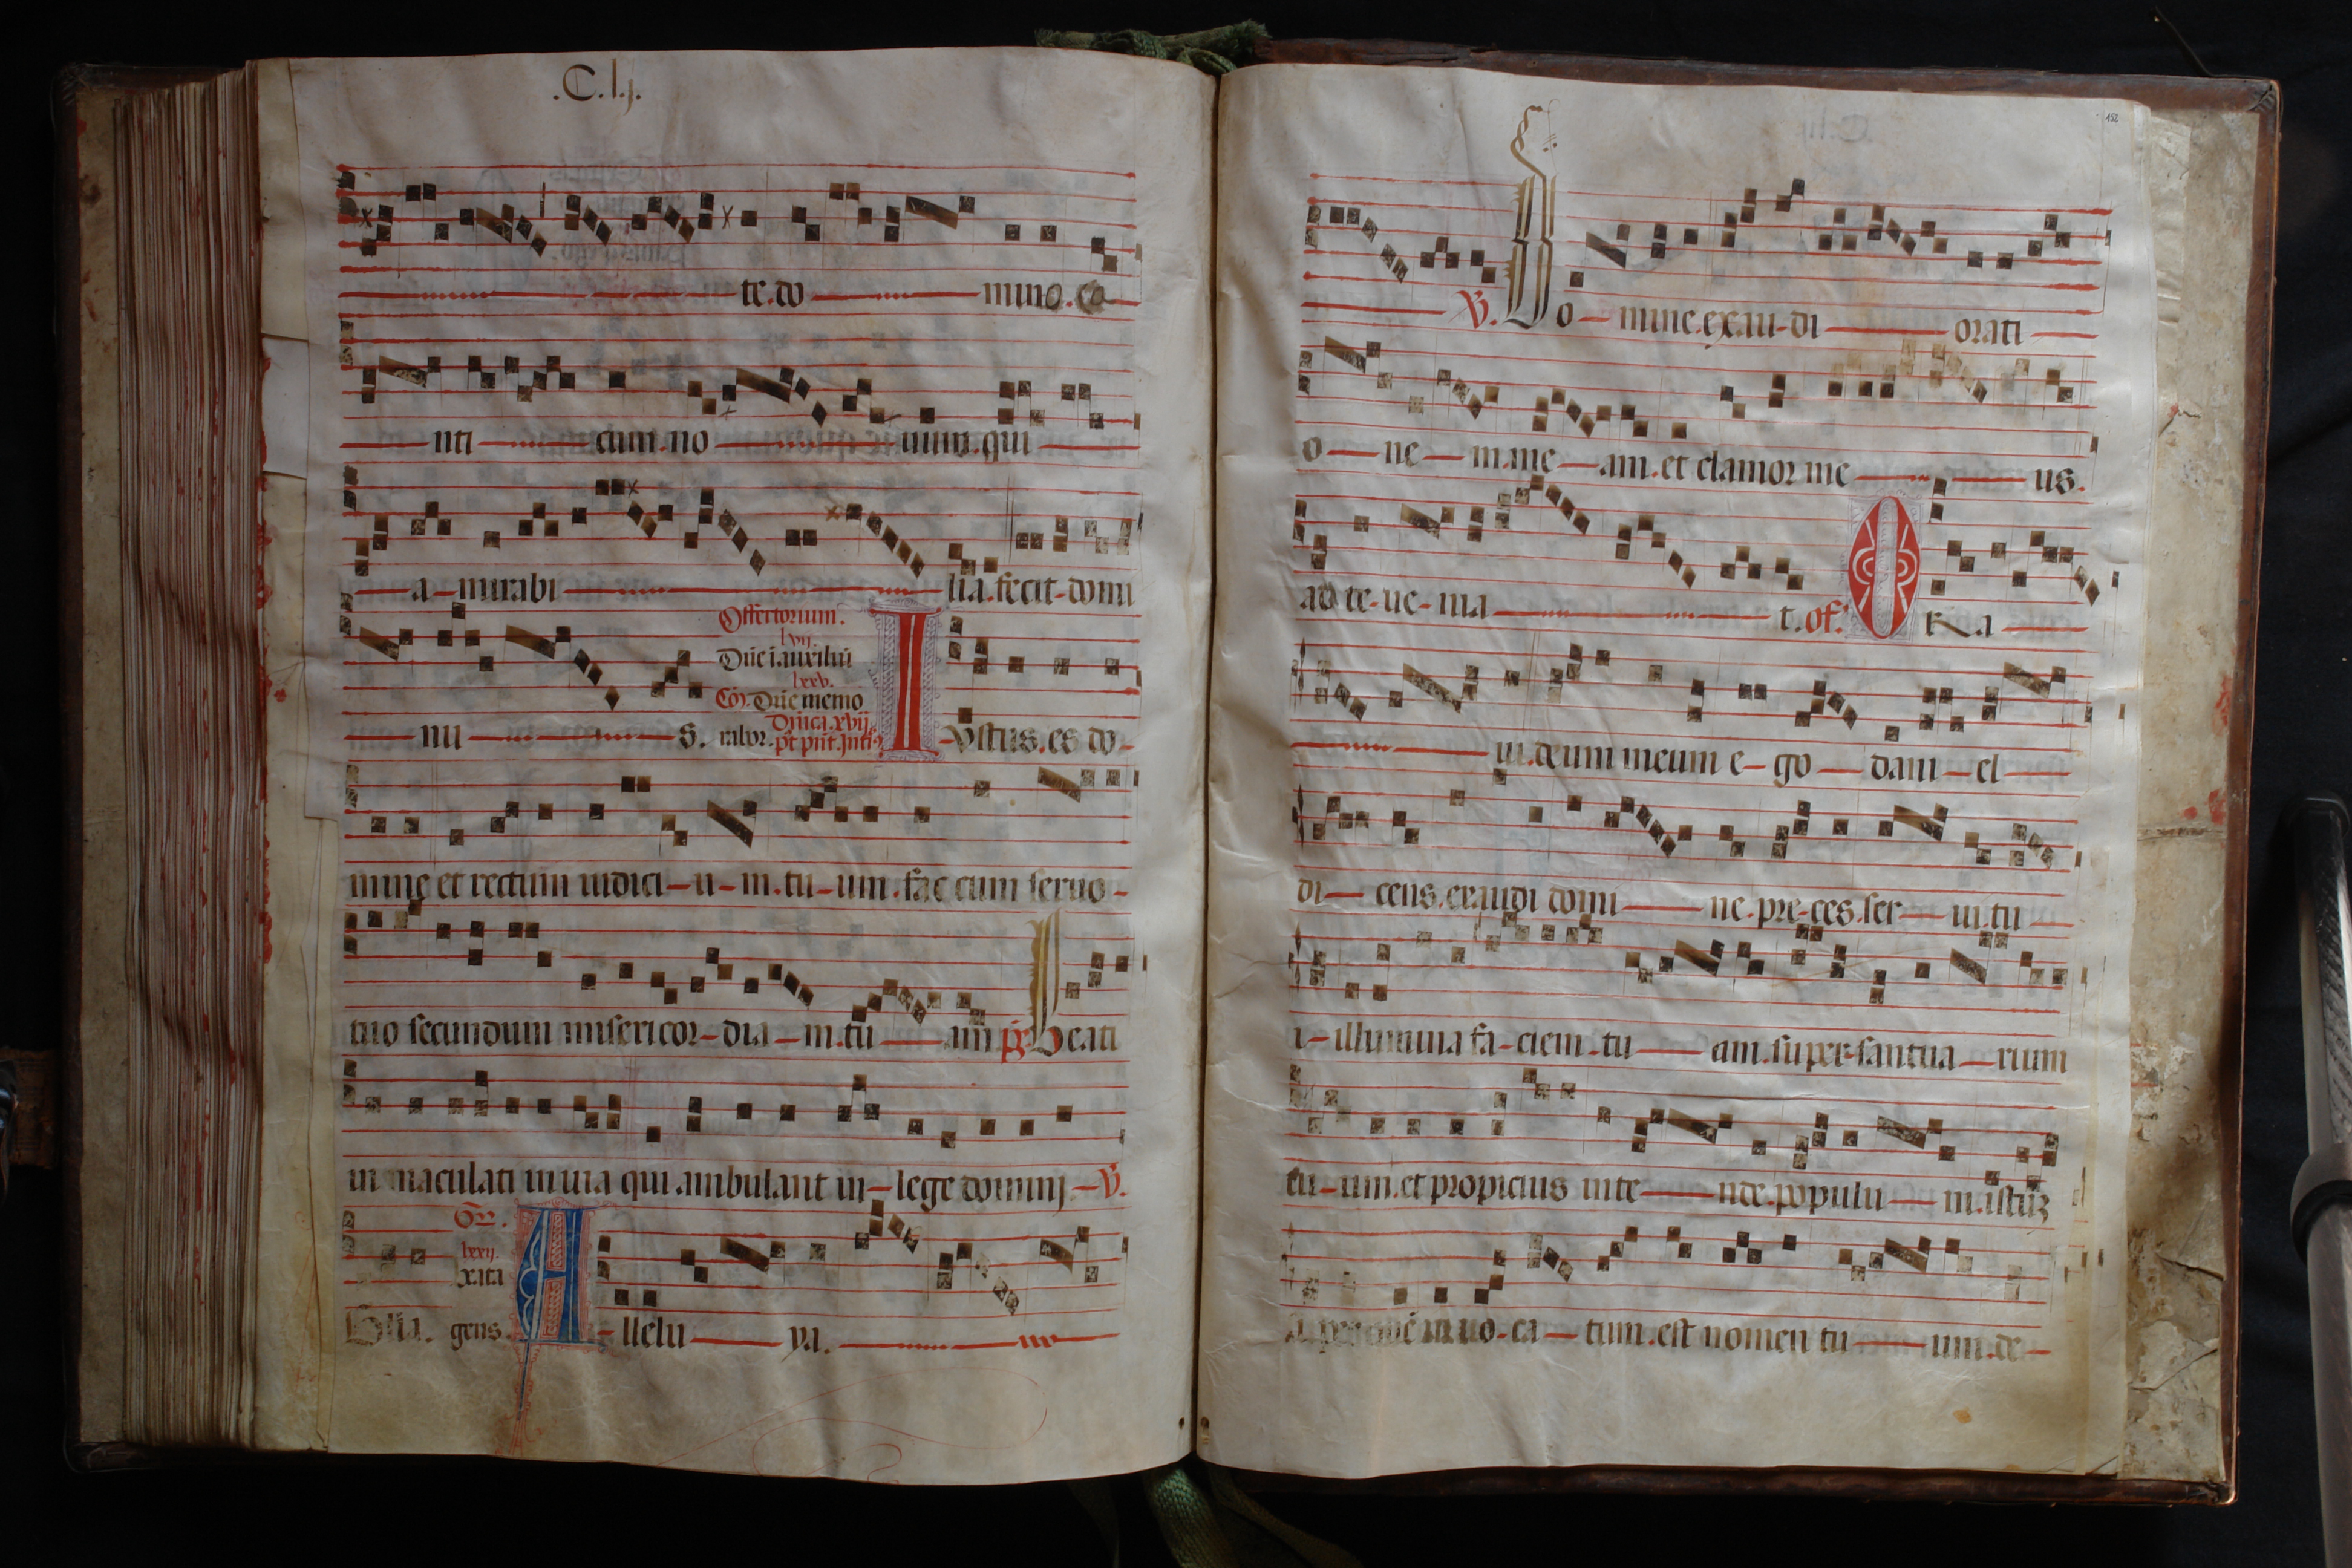 .C.lj.
te.do mino.ca
nti cum.no uum.qui
a mirabi lia.fecit-domi
Offertorium.
lvij.
Dñe i auxiliũ
lxxv.
Cõ. Dñe memo
nu s. rabor. Dñica xvij
I vstus.es do-
mine et rectum iudici-u-m.tu-um.fac cum seruo-
tuo secundum misericor-dia-m.tu am ps Beati
inmaculati in uia qui ambulant in-lege dominj-V.
Gr.
lxxij.
Glia. gens. A-llelu ya.
152
V. Do-mine.exau-di orati
o-ne-m.me-am.et clamor me us.
ad te-ue-nia t. of. O Ra
ui.deum meum e-go dani-el
di-cens.exaudi domi ne.pre-ces.ser-ui.tu
i-illumina fa-ciem.tu am.super-santua-rium
tu-um.et propicius inte nde.populu m.istũ
in uo-ca-tum.est nomen tu um.de-